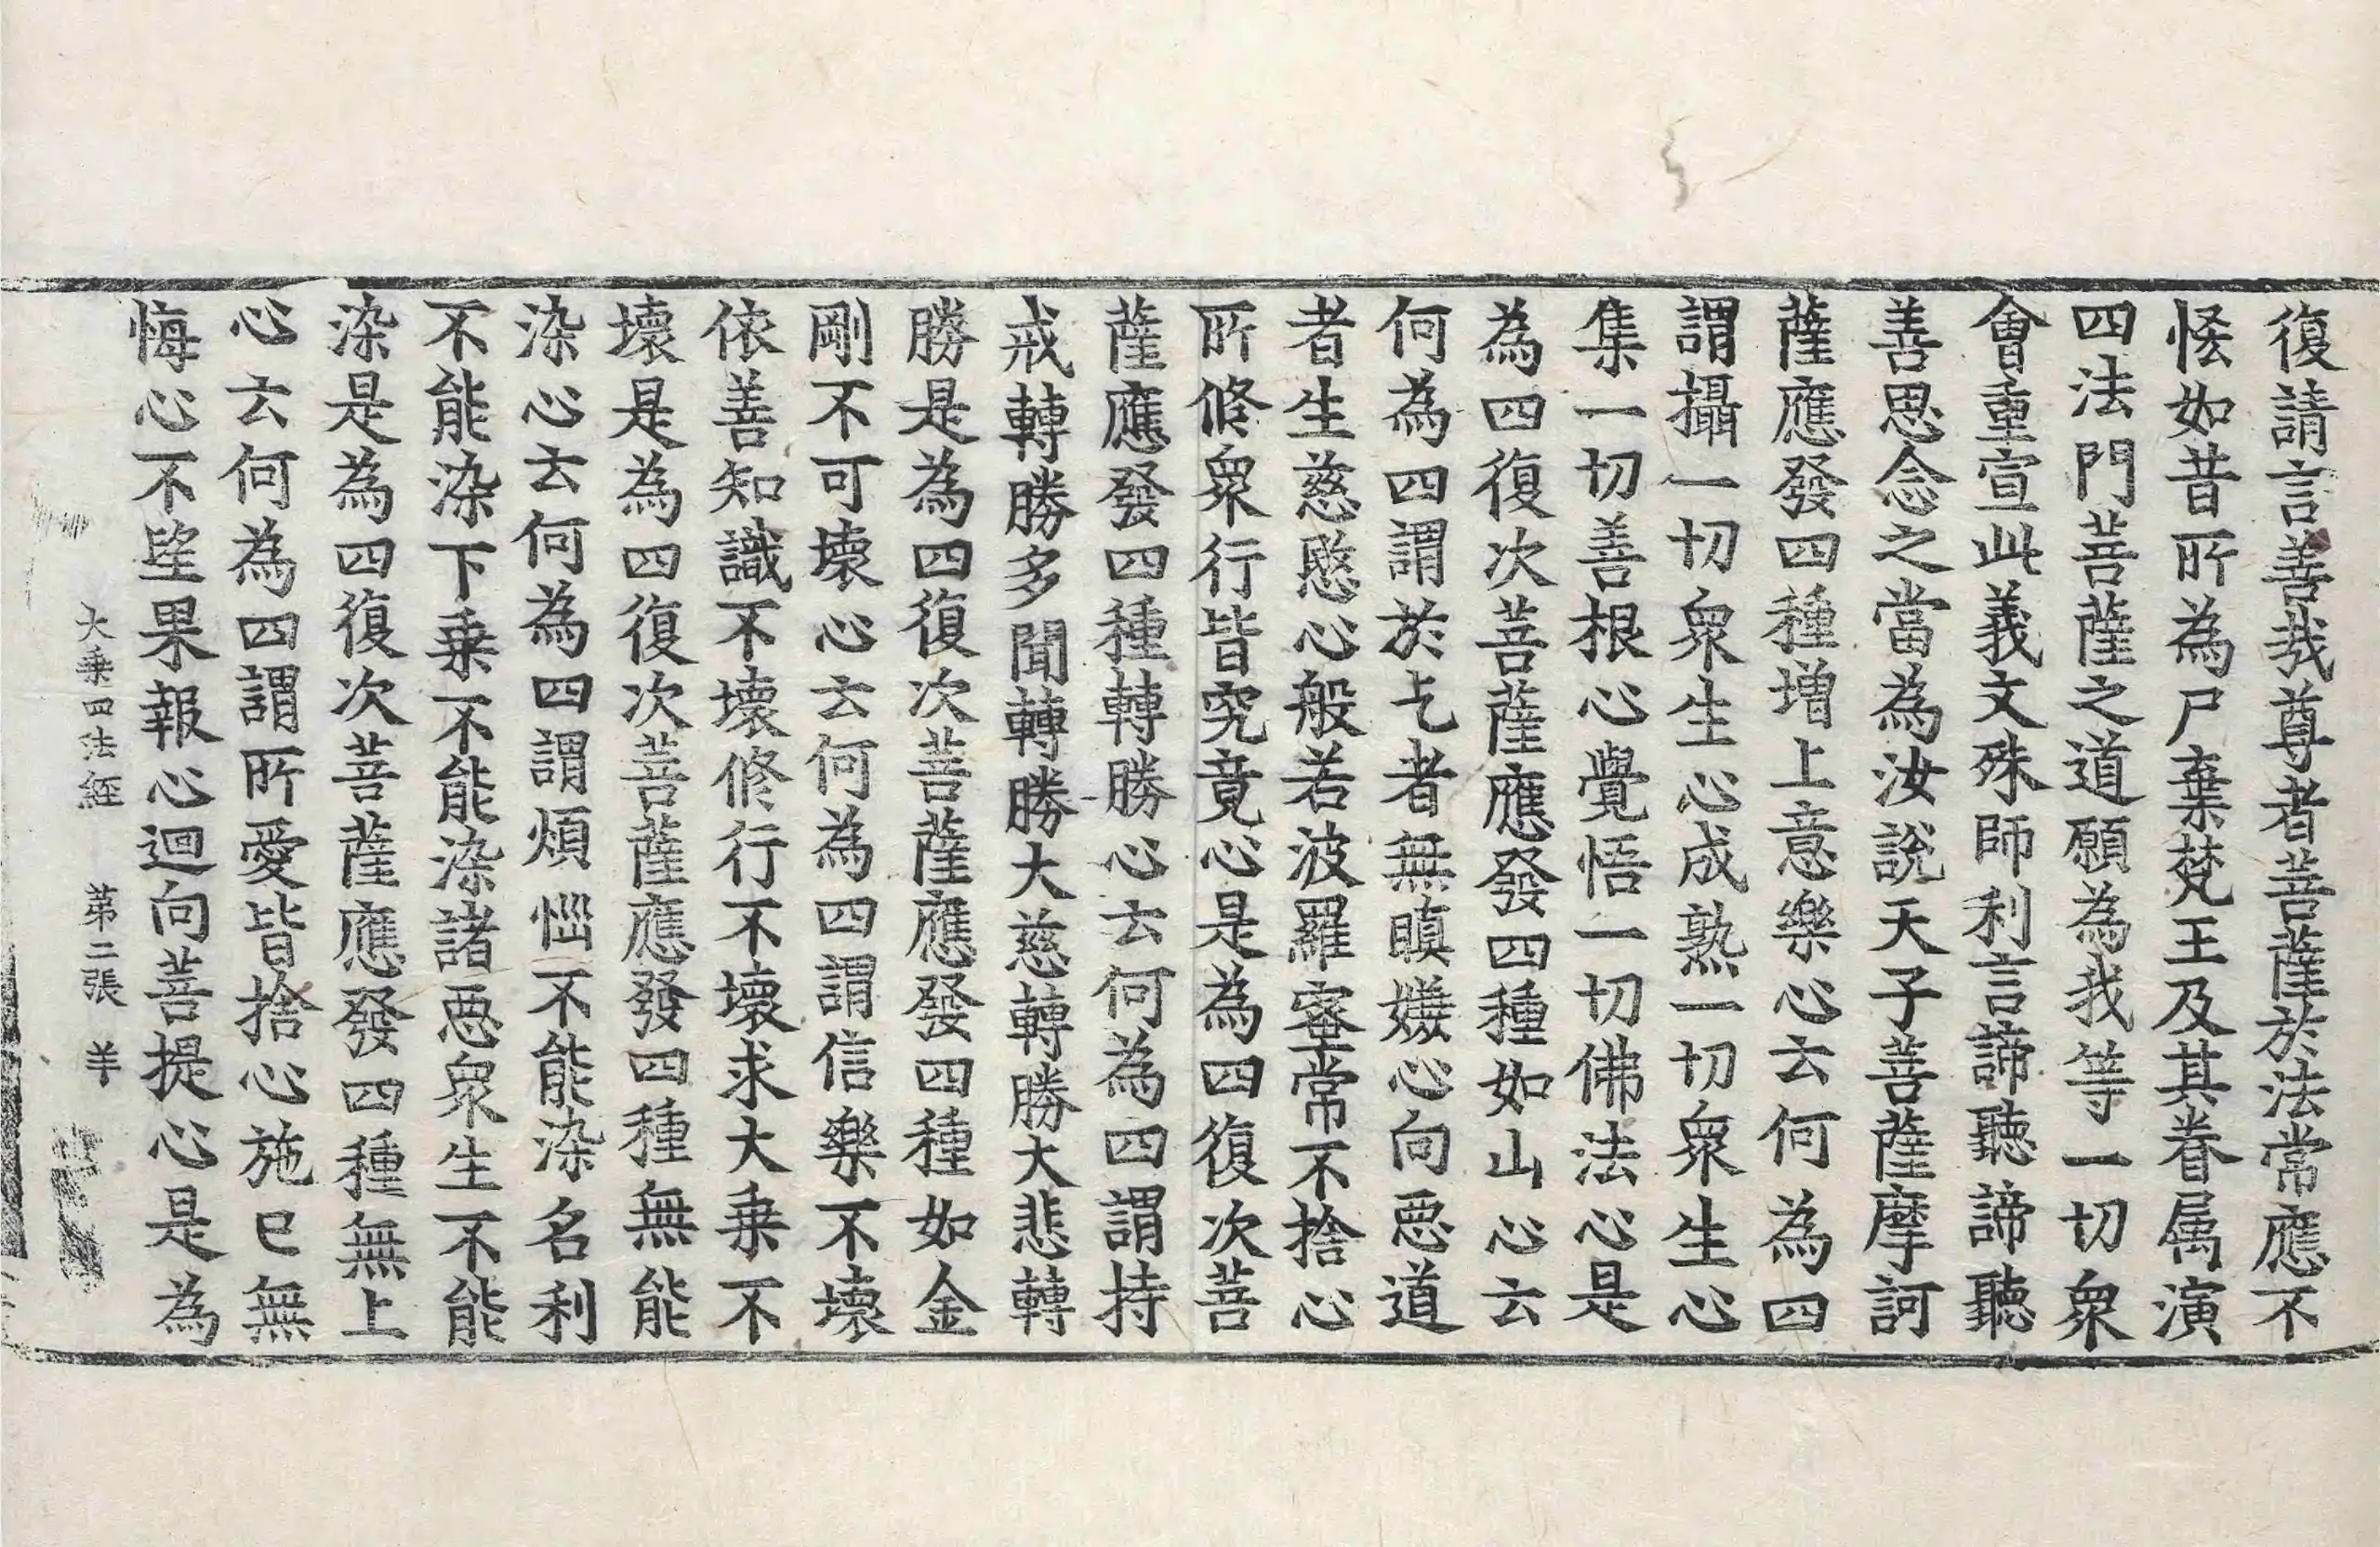 復請言善哉尊者菩薩於法常應不
恡如昔所為尸棄梵王及其眷属演
四法門菩薩之道願為我等一切衆
會重宣此義文殊師利言諦聽諦聽
善思念之當為汝說天子菩薩摩訶
薩應發四種増上意樂心云何為四
謂攝一切衆生心成熟一切衆生心
集一切善根心覺悟一切佛法心是
為四復次菩薩應發四種如山心云
何為四謂於乞者無瞋嫌心向惡道
者生慈愍心般若波羅蜜常不捨心
所修衆行皆究竟心是為四復次菩
薩應發四種轉勝心云何為四謂持
戒轉勝多聞轉勝大慈轉勝大悲轉
勝是為四復次菩薩應發四種如金
剛不可壞心云何為四謂信樂不壞
依善知識不壞修行不壞求大乗不
壞是為四復次菩薩應發四種無能
染心云何為四謂煩惱不能染名利
不能染下乗不能染諸惡衆生不能
染是為四復次菩薩應發四種無上
心云何為四謂所愛皆捨心施已無
悔心不望果報心迴向菩提心是為
大乗四法經　第二張　羊